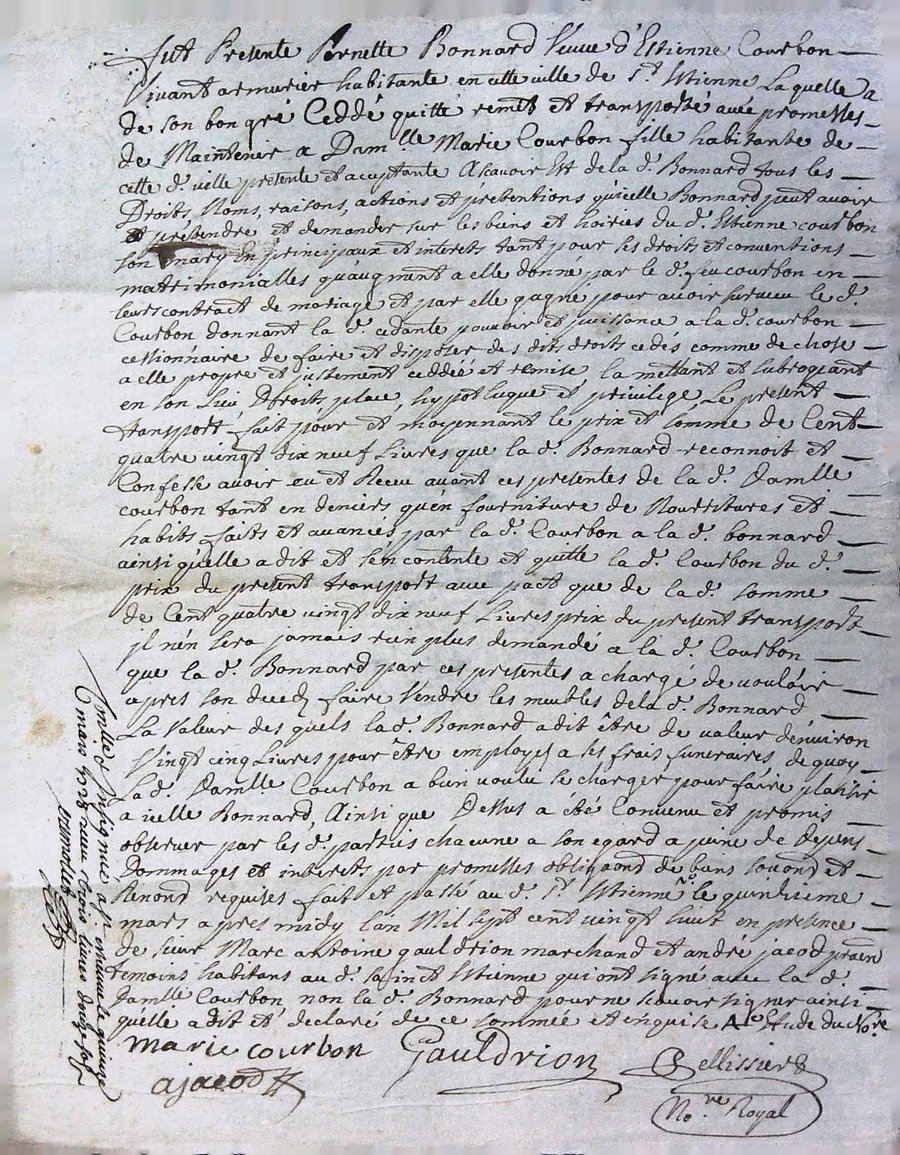 fut Presente Pernette Bonnard Veuve d'Estienne Courbon
Vivant armurier habitante en cette ville de St Etienne Laquelle a
de son bon gré Ceddé quitté remis et transporté avec promesses
de Maintenir a Damlle Marie Courbon fille habitante de
cette d. ville presente et aceptante Ascavoir Est de la d. Bonnard tous les
Droits, Noms, raisons, actions et prétentions qu'icelle Bonnard peut avoir
et prétendre et demander sur les biens et hoiries du d. Estienne courbon
son mary En principaux et interets tant pour ses droits et conventions
matrimonialles qu'augment a elle donné par le d. feu courbon en
leurs contract de mariage et par elle gagné pour avoir survecu le d.
Courbon donnant la d. cedante pouvoir et puissance a la d. courbon
cessionnaire de faire et disposer des dits droits cedés comme de chose
a elle propre et justement ceddée et remise la mettant et subrogeant
en son Lieu Droits, place, hypotheque et privilege Le present
transport fait pour et moyennant le prix et somme de Cent
quatre vingt dix neuf Livres que la d. Bonnard reconnoit et
Confesse avoir eu et Receu avant ces presentes de la d. Damlle
courbon tant en deniers qu'en fourniture de Nourritures et
habits faits et avancés par la d. Courbon a la d. bonnard
ainsi qu'elle a dit et s'en contente et quitte la d. Courbon du d.
prix du present transport avec pact que de la d. somme
de Cent quatre vingt dix neuf Livres prix du present transport
il n'en sera jamais rien plus demandé a la d. Courbon
que la d. Bonnard par ces presentes a chargé de vouloir
apres son deced faire Vendre les meubles de la d. Bonnard
La Valeur des quels la d. Bonnard a dit être de valeur d'environ
Vingt cinq Livres pour être employés a ses frais funeraires de quoy
La d. Damlle Courbon a bien voulu se charger pour faire plaisir
a icelle Bonnard, Ainsi que Dessus a été Convenu et promis
observer par les d. parties chacune a son egard a peine de Depens
Dommages et interets par promesses obligaond de biens souond et
Renond requises fait et passé au d. St Etienne le quinzieme
mars apres midy Lan Mil sept cent vingt huit en presence
de sieur Marc antoine gauldrion marchand et andré jacod praen
temoins habitans au d. Sainct Etienne qui ont signé avec la d.
Damlle Courbon non la d. Bonnard pour ne scavoir signer ainsi
qu'elle a dit et declaré de ce sommée et enquise A Etude du Nore
marie courbon
Gauldrion
Pellissier
ajacod
Nore Royal
et insinué a St etienne le quinze
mars 1728 receu livres douze sols